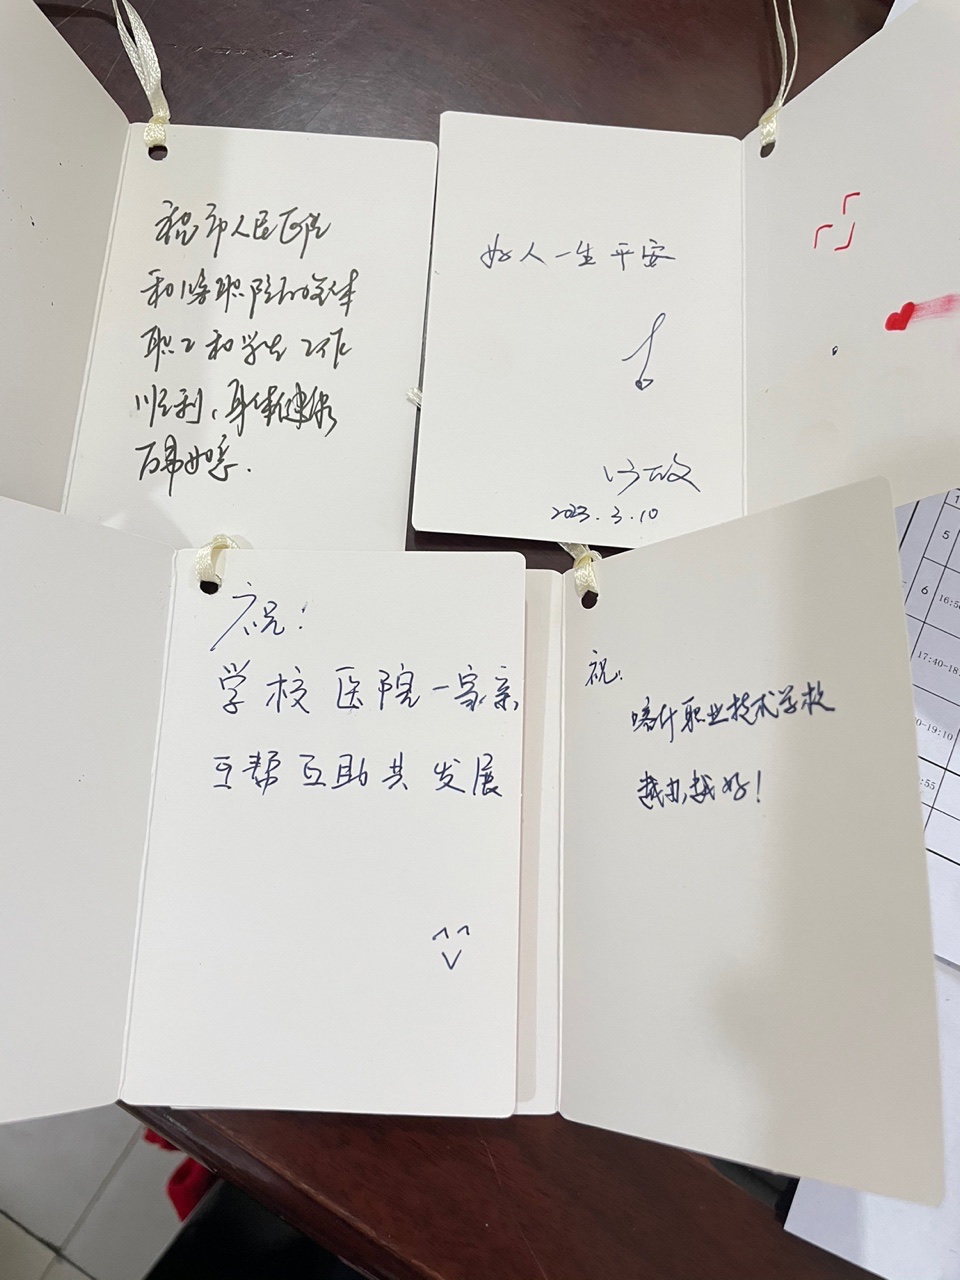 祝市人民医院
和喀职院的全体
职工和学生工作
顺利，身体健康
万事如意.
好人一生平安
2023.3.10
祝！
学校医院一家亲
互帮互助共发展
祝：
喀什职业技术学校
越办越好！
5
6
16:50
17:40-18
0-19:10
:55